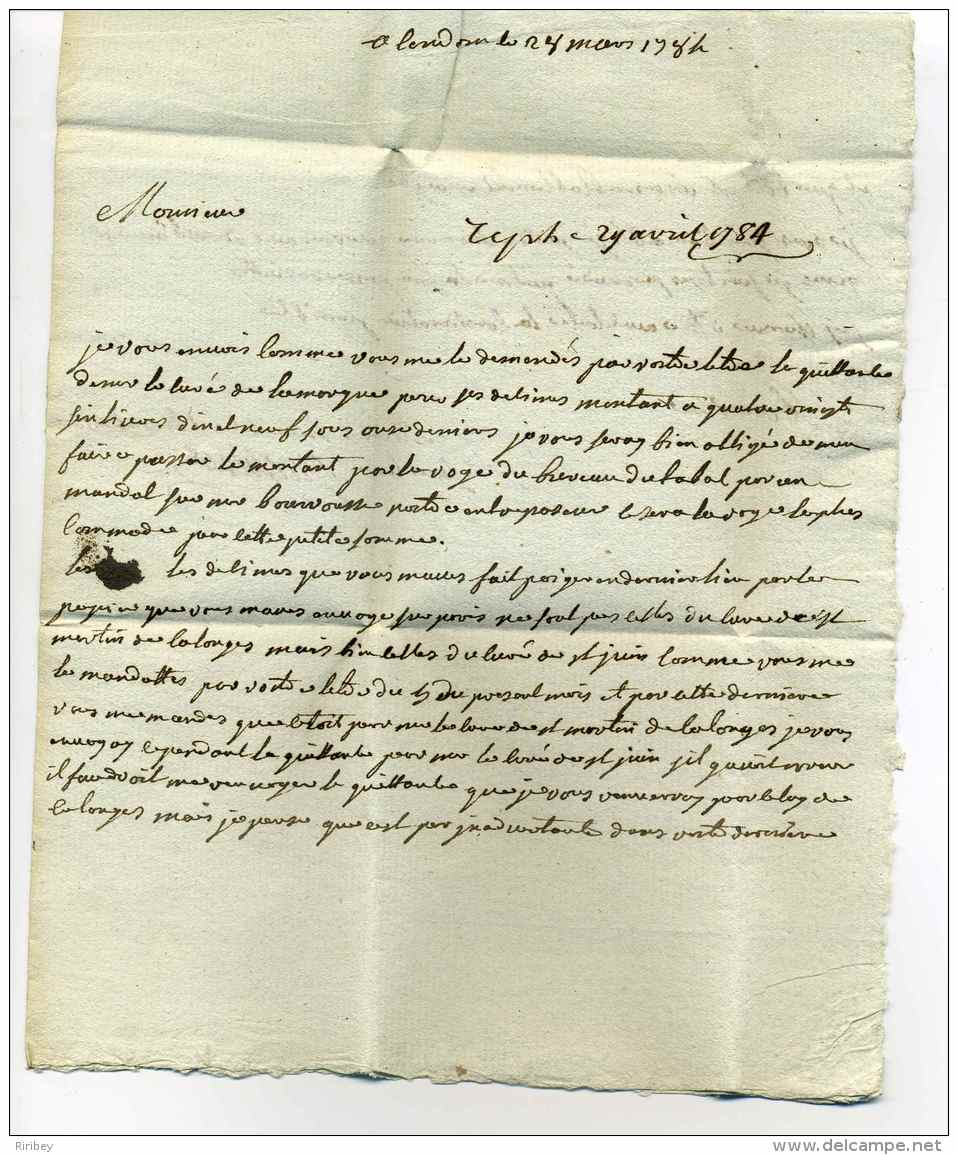 a loudun le 28 mars 1784
Monsieur
29 avril 1784
je vous envois comme vous me le demendés par votre letre la quittance
de mr le curé de lamorque pour ses desimes montant a quatre vingt
six livres dix neuf sous onse deniers je vous seray bien obligé de men
faire passer le montant par la voye du bureau du tabac par un
mandat sur mr bourousse notre entreposeur se sera la voye la plus
commode pour cette petite somme.
les desimes que vous maves fait paiyer en dernier lieu par le
papier que vous maves envoye sur paris ne sont pas celles du curé de st
martin de lalonges mais bien celles du curé de st juin comme vous me
le mandattes par votre letre du 4 du present mois et par cette derniere
vous me mandes que cetoit pour mr le curé de st martin de lalonges je vous
envoyay cependant la quittance pour mr le curé de st juin sil y avoit erreur
il faudroit me renvoyer la quittance que je vous renverray pour celuy de
lalonges mais je pense que cest par inadvertance dans votre derniere
Riribey
www.delcampe.net